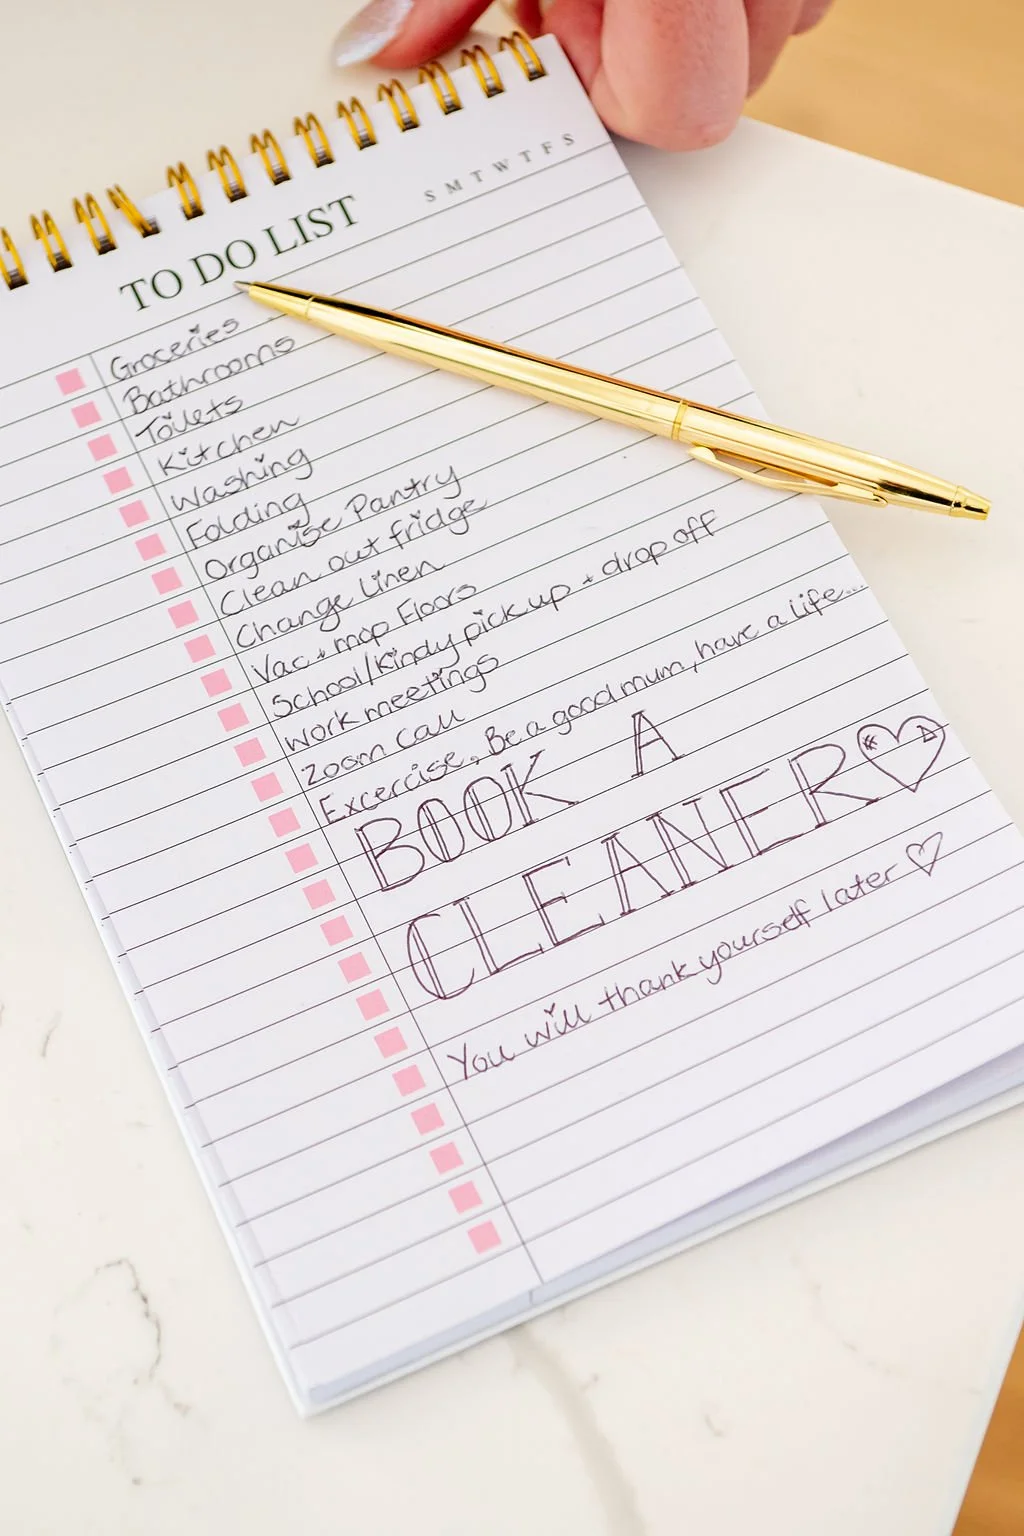 S M T W T F S
TO DO LIST
Groceries
Bathrooms
Toilets
Kitchen
Washing
Folding
Organise Pantry
Clean out fridge
Change Linen
Vac + mop Floors
School/Kindy pick up + drop off
Work meetings
Zoom Call
Excercise, Be a good mum, have a life...
BOOK A
CLEANER
You will thank yourself later